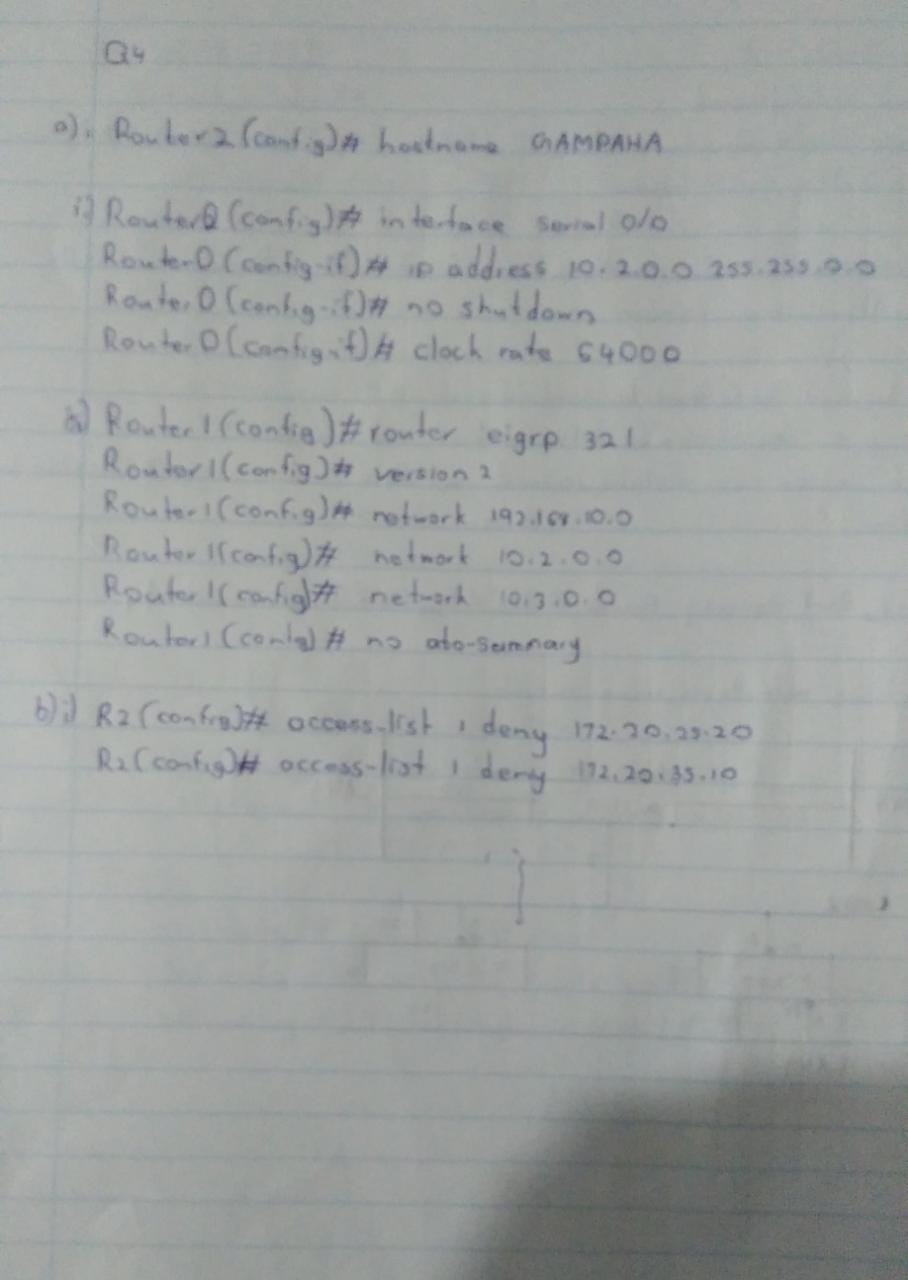 Q4
a). Router2(config)# hostname GAMPAHA
i) Router0(config)# interface serial 0/0
Router0(config-if)# ip address 10.2.0.0 255.255.0.0
Router0(config-if)# no shutdown
Router0(config-if)# clock rate 64000
Router1(config)# router eigrp 321
Router1(config)# version 2
Router1(config)# network 192.168.10.0
Router1(config)# network 10.2.0.0
Router1(config)# network 10.3.0.0
Router1(confg)# no ato-summary
b)i) R2(config)# access-list 1 deny 172.20.25.20
R2(config)# access-list 1 deny 172.20.35.10